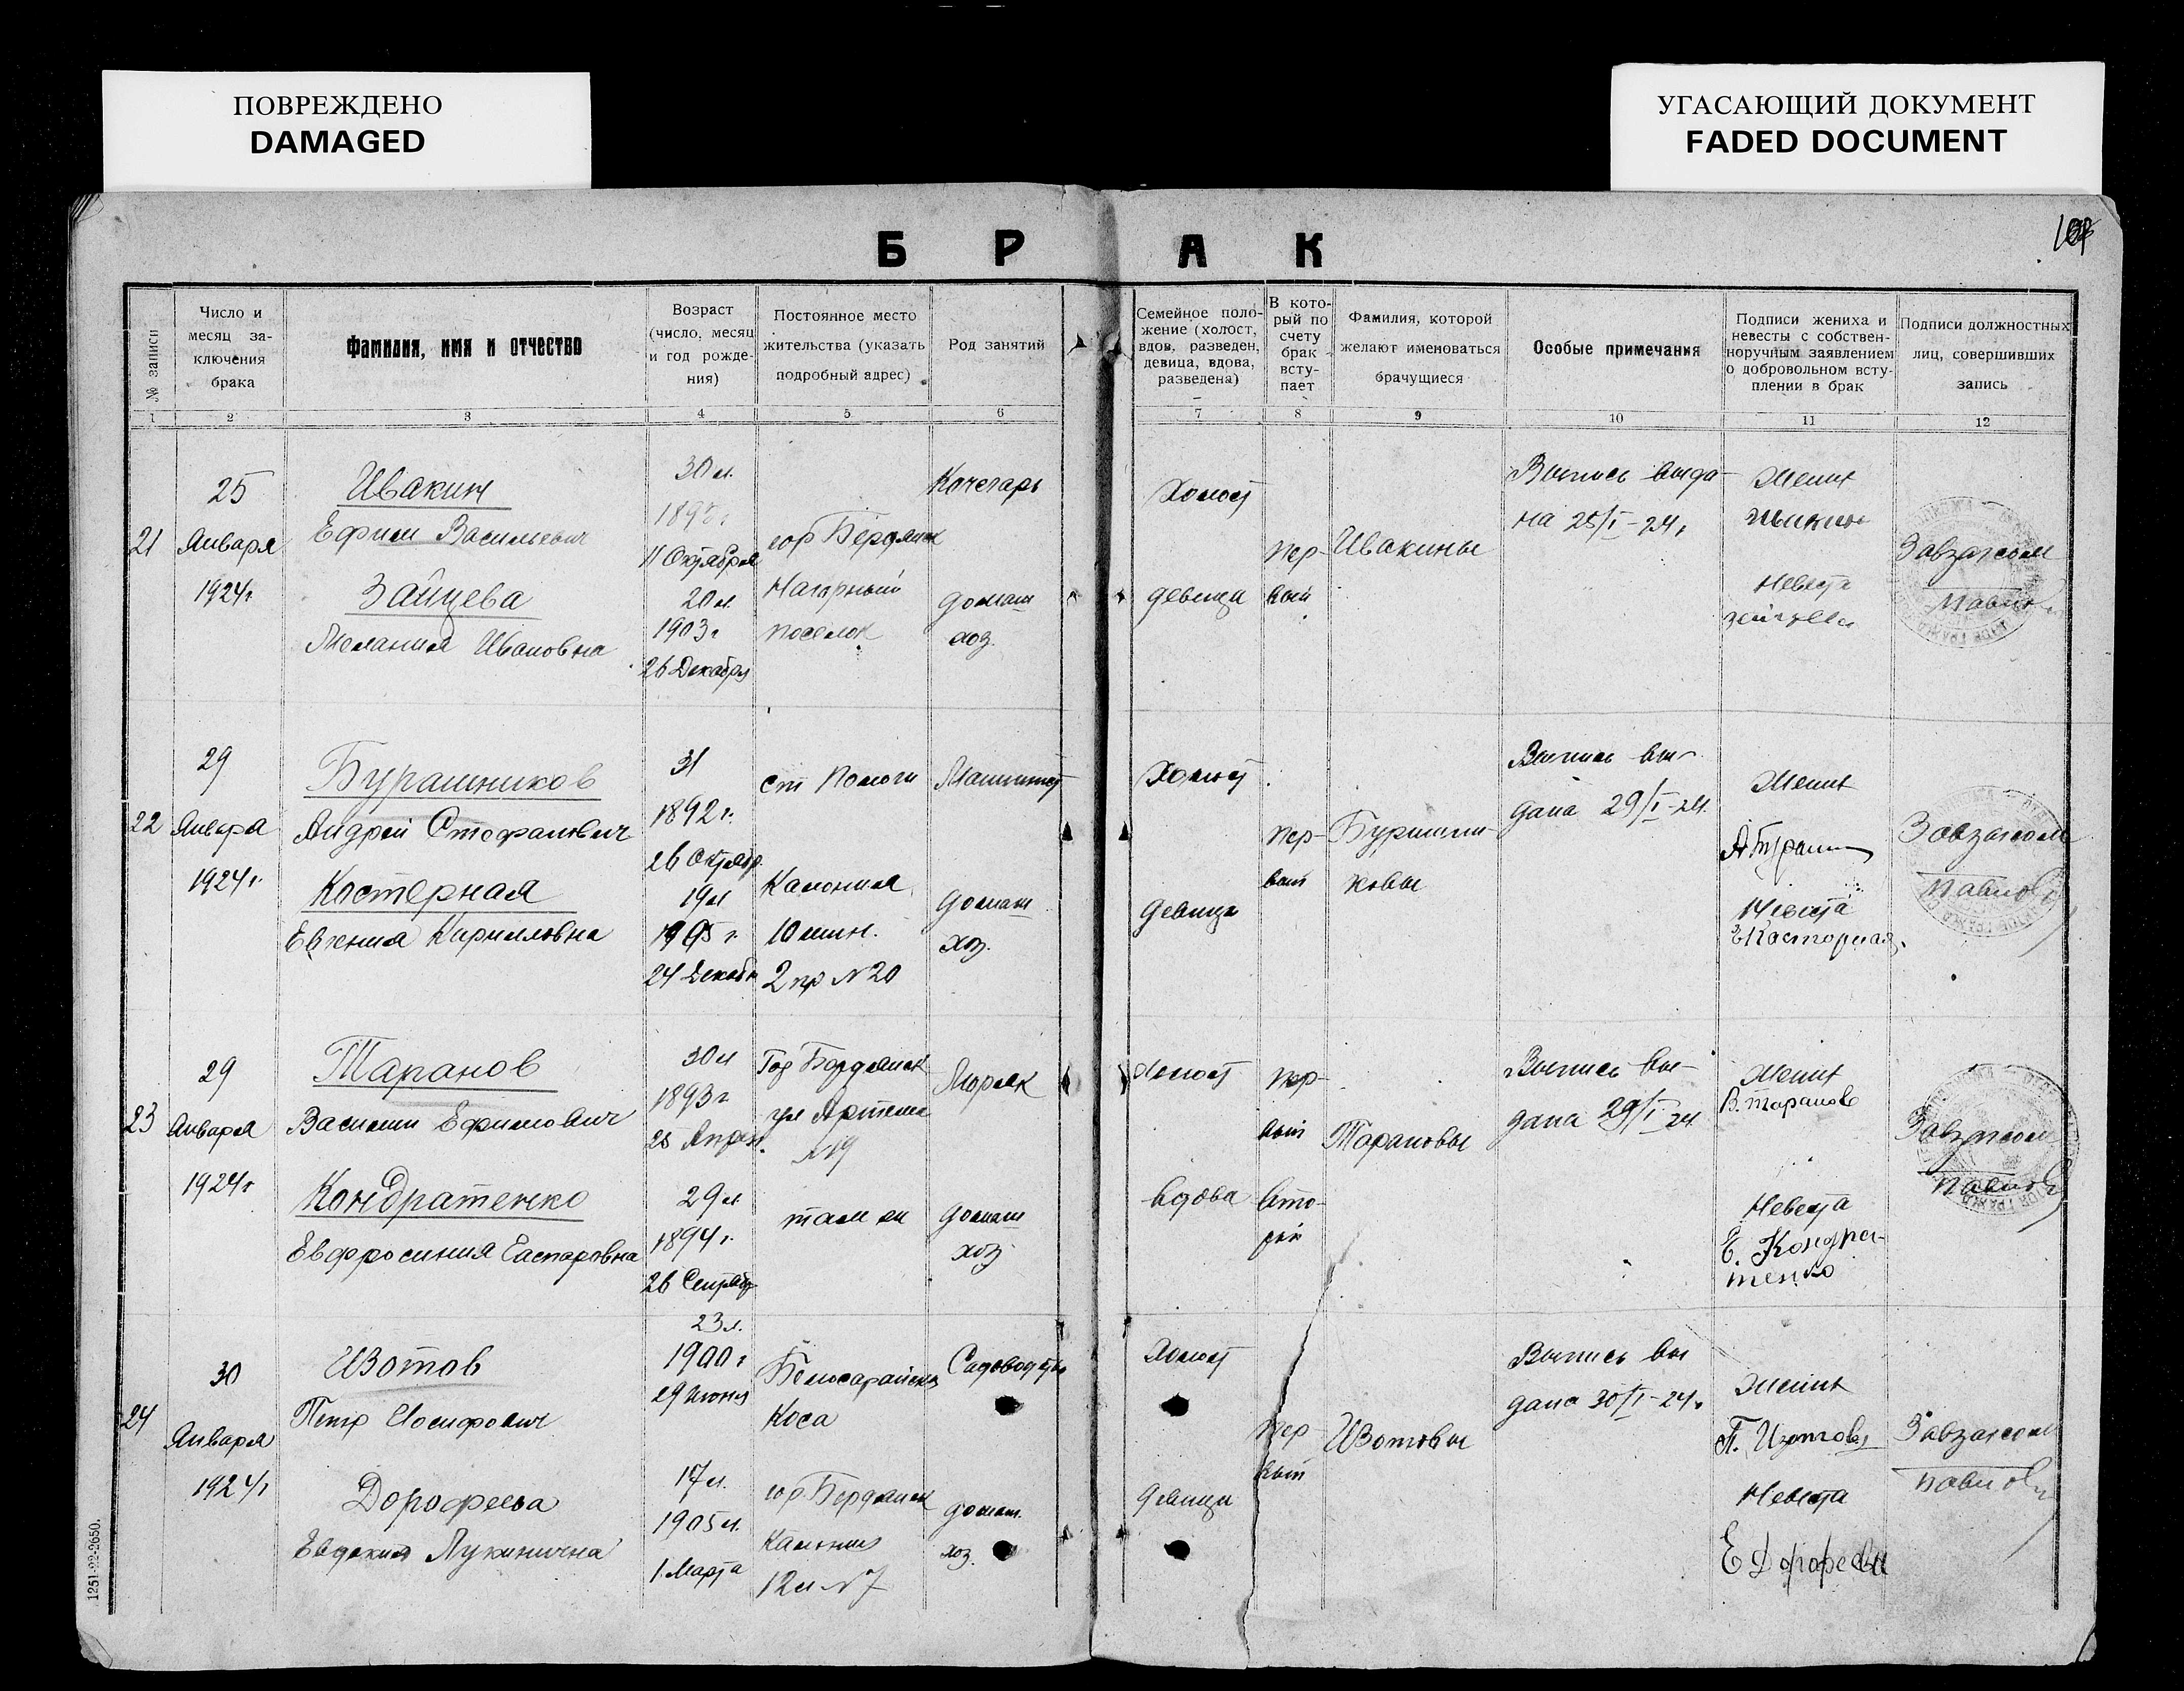 ПОВРЕЖДЕНО
DAMAGED
УГАСАЮЩИЙ ДОКУМЕНТ
FADED DOCUMENT
БРАК
№ записи
Число и
месяц за-
ключения
брака
Фамилия, имя и отчество
Возраст
(число, месяц
и год рожде-
ния)
Постоянное место
жительства (указать
подробный адрес)
Род занятий
Семейное поло-
жение (холост,
вдов, разведен,
девица, вдова,
разведена)
В кото-
рый по
счету
брак
всту-
пает
Фамилия, которой
желают именоваться
брачущиеся
Особые примечания
Подписи жениха и
невесты с собствен-
норучным заявлением
о добровольном всту-
плении в брак
Подписи должностных
лиц, совершивших
запись
1 2 3 4 5 6 7 8 9 10 11 12
21
25
Января
1924г
Ивакин
Ефим Васильевич
Зайцева
Мелания Ивановна
30 л.
11 Октября
20 л.
1903 г
26 Декабря
гор Бердянск
Нагорный
поселок
Кочегарь
домаш
хоз.
Холост
девица
пер-
вый
Ивакины
Выпись выда-
на 25/I-24г
Жених
Невеста
Завзагсом
Павлов
22
29
Января
1924г.
Бурашников
Андрей Стефанович
Костерная
Евгения Кирилловна
31
1892 г.
26 Октябр.
19 л
1905 г.
24 Декабр
ст Пологи
Колония
10 лин.
2 пр N 20
Машинист
домаш
хоз.
Холост
девица
пер-
вый
Бурашни-
ковы
Выпись вы-
дана 29/I-24.
Жених
Невеста
Е Косторная.
Завзагсом
Павлов
23
29
Января
1924г
Таранов
Василий Ефимович
Кондратенко
Евфросиния Гаспаровна
30 л
1893 г
25 Апрел.
29 л
1894 г.
26 Сентябр
Гор Бердянск
ул Артема
N 19
там же
Моряк
домаш
хоз.
Холост
вдова
пер-
вый
вто-
рой
Тарановы
Выпись вы-
дана 29/I-24
Жених
В. Таранов
Невеста
Е. Кондра-
тенко
Завзагсом
Павлов
24
30
Января
1924г
Изотов
Петр Иосифович
Дорофеева
Евдокия Лукинична
23 л.
1900 г
29 Июня
17 л.
1905 г.
1 Марта
Белосарайская
Коса
гор Бердянск
Колония
12 л N 7
Садоводство
домаш.
хоз.
Холост
девица
пер
вый
Изотовы
Выпись вы
дана 30/I-24г
Жених
П. Изотов
Невеста
Е Дорофеева
Завзагсом
Павлов
1251-22-2650.